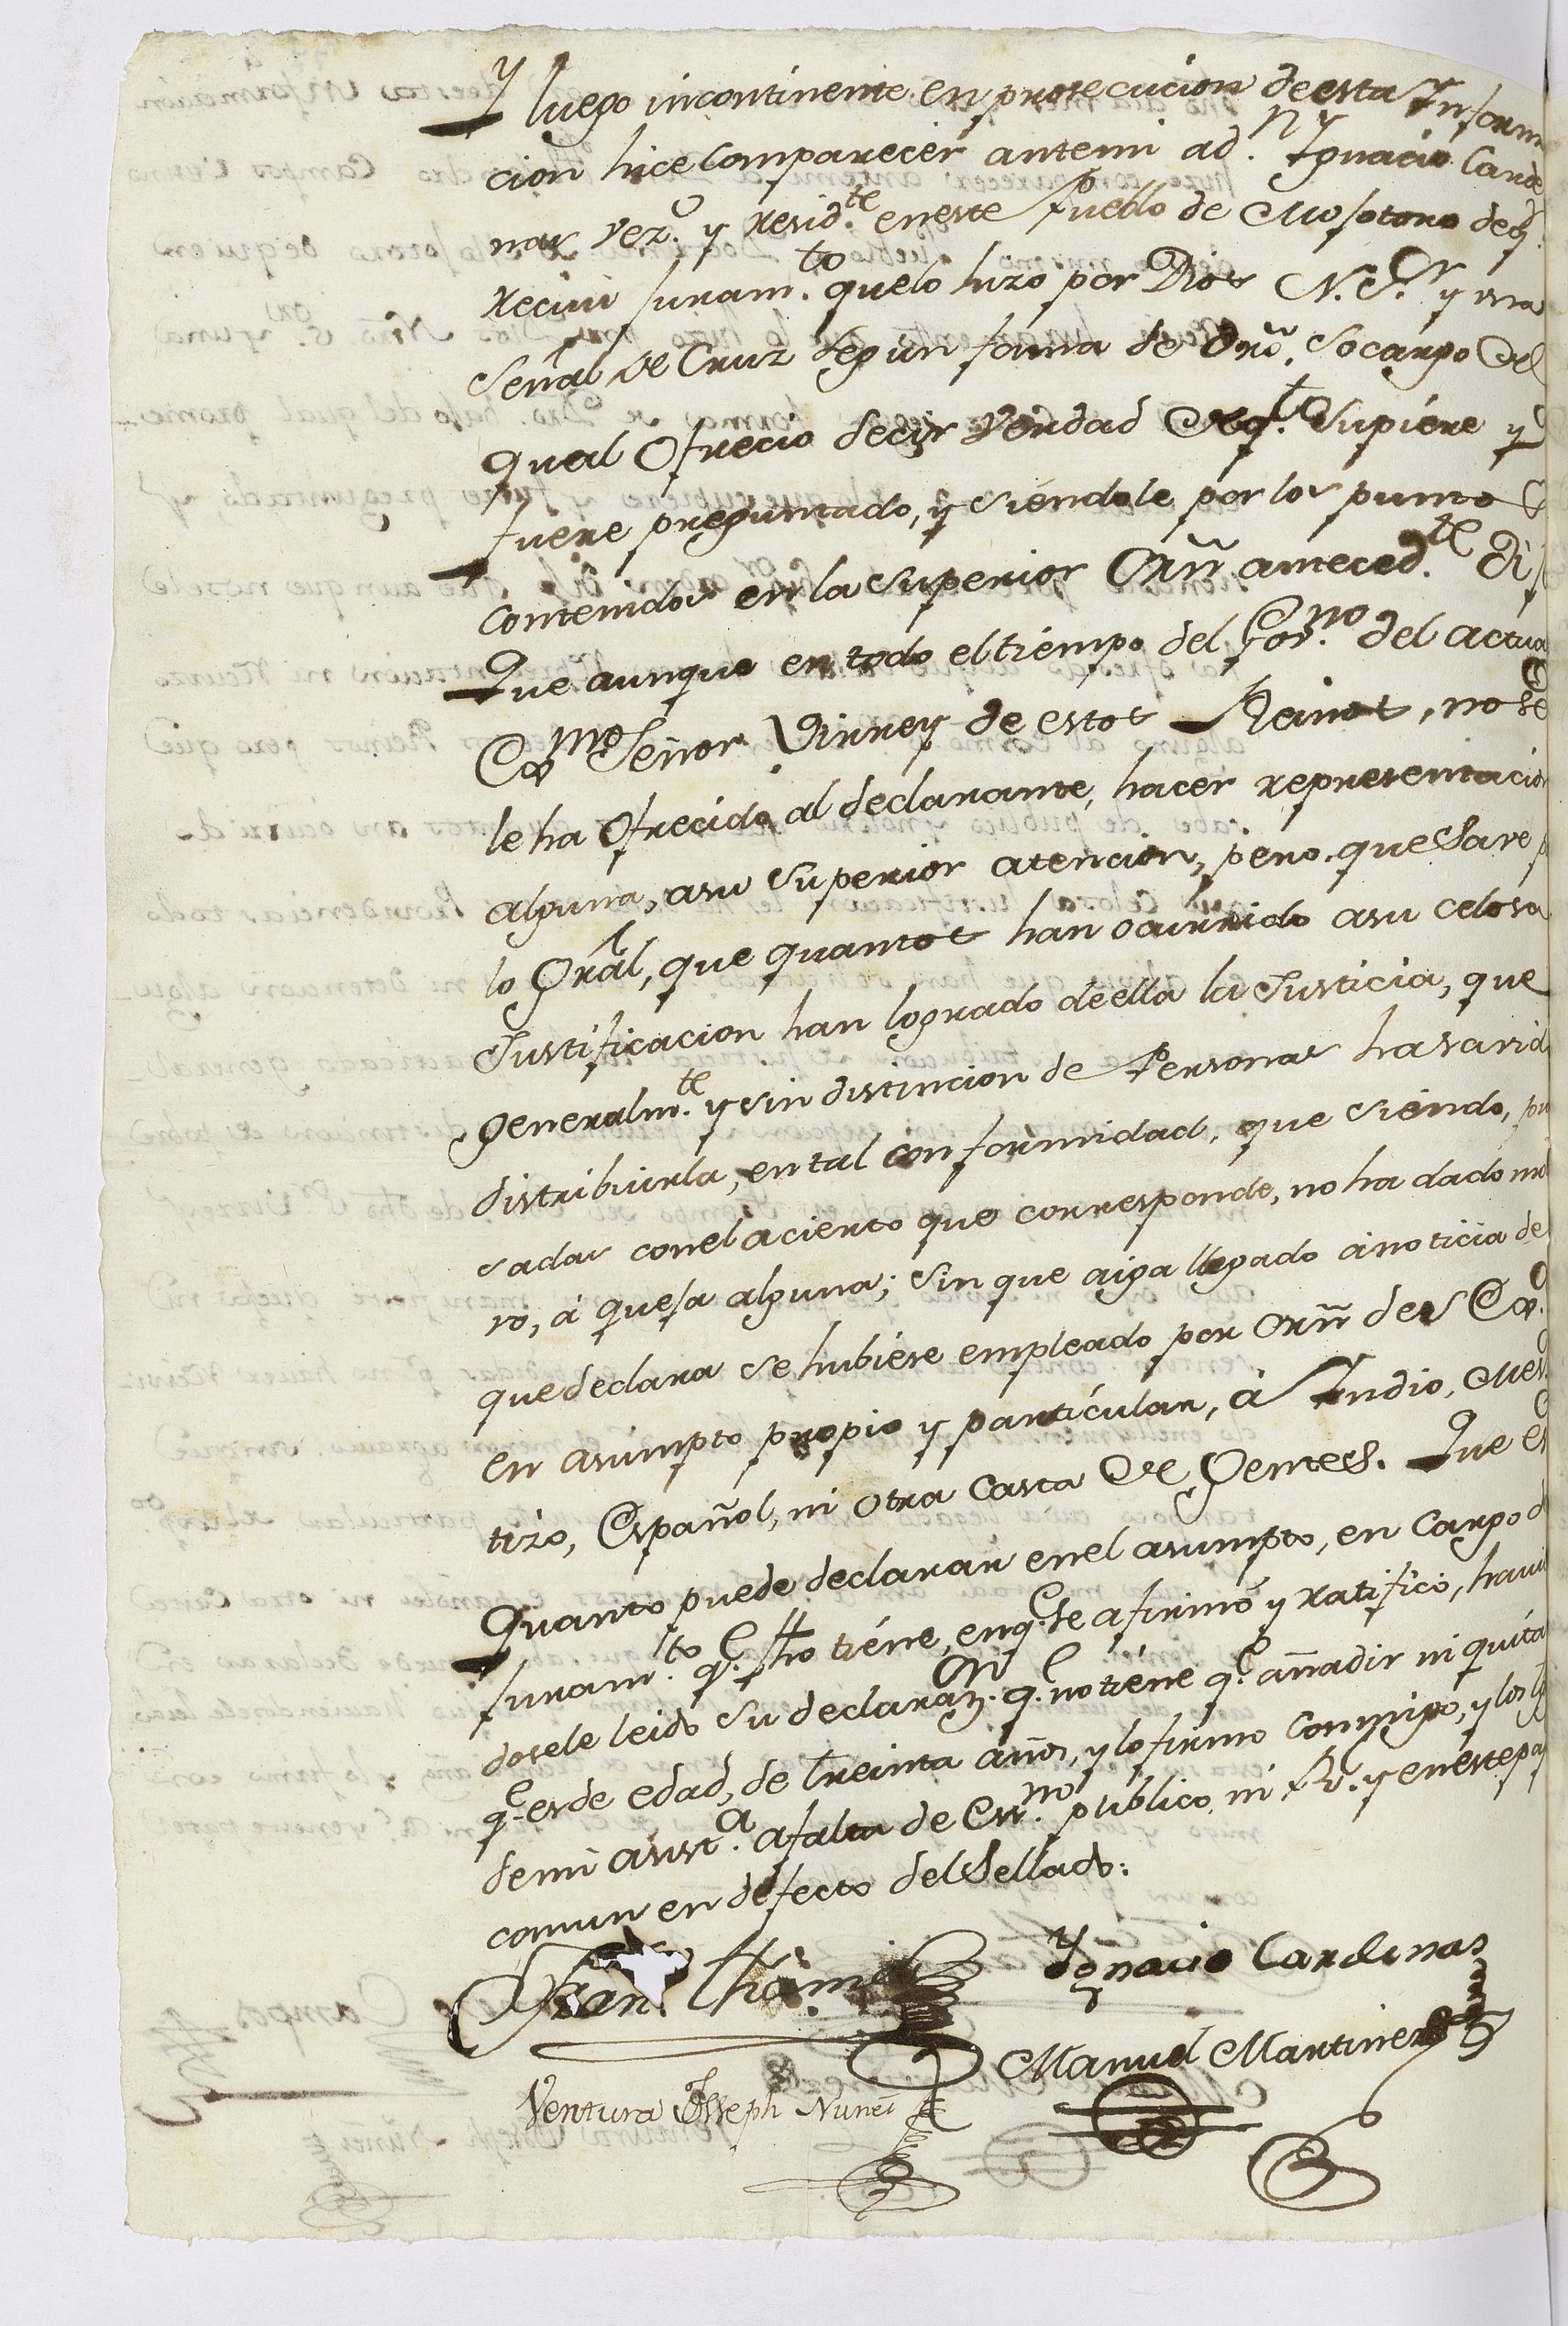 Y luego incontinente en prosecucion deesta Inform
cion hice Comparecer antemi a d.ⁿ Ygnacio Carde
nas vez.º y resid.te eneste Pueblo de Mosotoro deq.
recivi Juram.to quelo hizo por Dios N. S.r y una
Señal de Cruz segun forma de Drõ. socargo del
qual Ofrecio decir Verdad deq.to Supiere y
fuere preguntado, y siendole por los puntos
contenidos en la Superior Orñ anteced.te Dij
Que aunque en todo el tiempo del Gov.no del actua
Exmo Señor Virrey de estos Reinos, no se
le ha Ofrecido al declarante, hacer representacion
alguna, asu Superior atencion, pero que Save p
lo Grãl, que quantos han ocurrido asu celosa
Justificacion han logrado deella la Justicia, que
generalm.te y sin distincion de Personas hasavid
distribuirla, en tal conformidad, que siendo, pu
sadas conel acierto que corresponde, no ha dado mo
vo, á quesa alguna; Sin que aiga llegado á noticia de
que declara se hubiese empleado por orñ de S Ex.
en asumpto propio y particular, á Indio, Mes
tizo, Español, ni otra Casta de Gentes. Que es
Quanto puede declarar enel asumpto, en Cargo d
Juram.to q.e fho tiene, enq.e se afirmó y ratificó, havi
dosele leido su declaraz.on q.e no tiene q.e añadir ni quita
q.e es de edad, de treinta años, y lo firmo Conmigo, y los tg
demi asist.a afalta de Ess.no publico, ni R.l y eneste pa
comun en defecto del Sellado:
Fran.
Ygnacio Cardenas
Manuel Martinez
Ventura Joseph Nunes